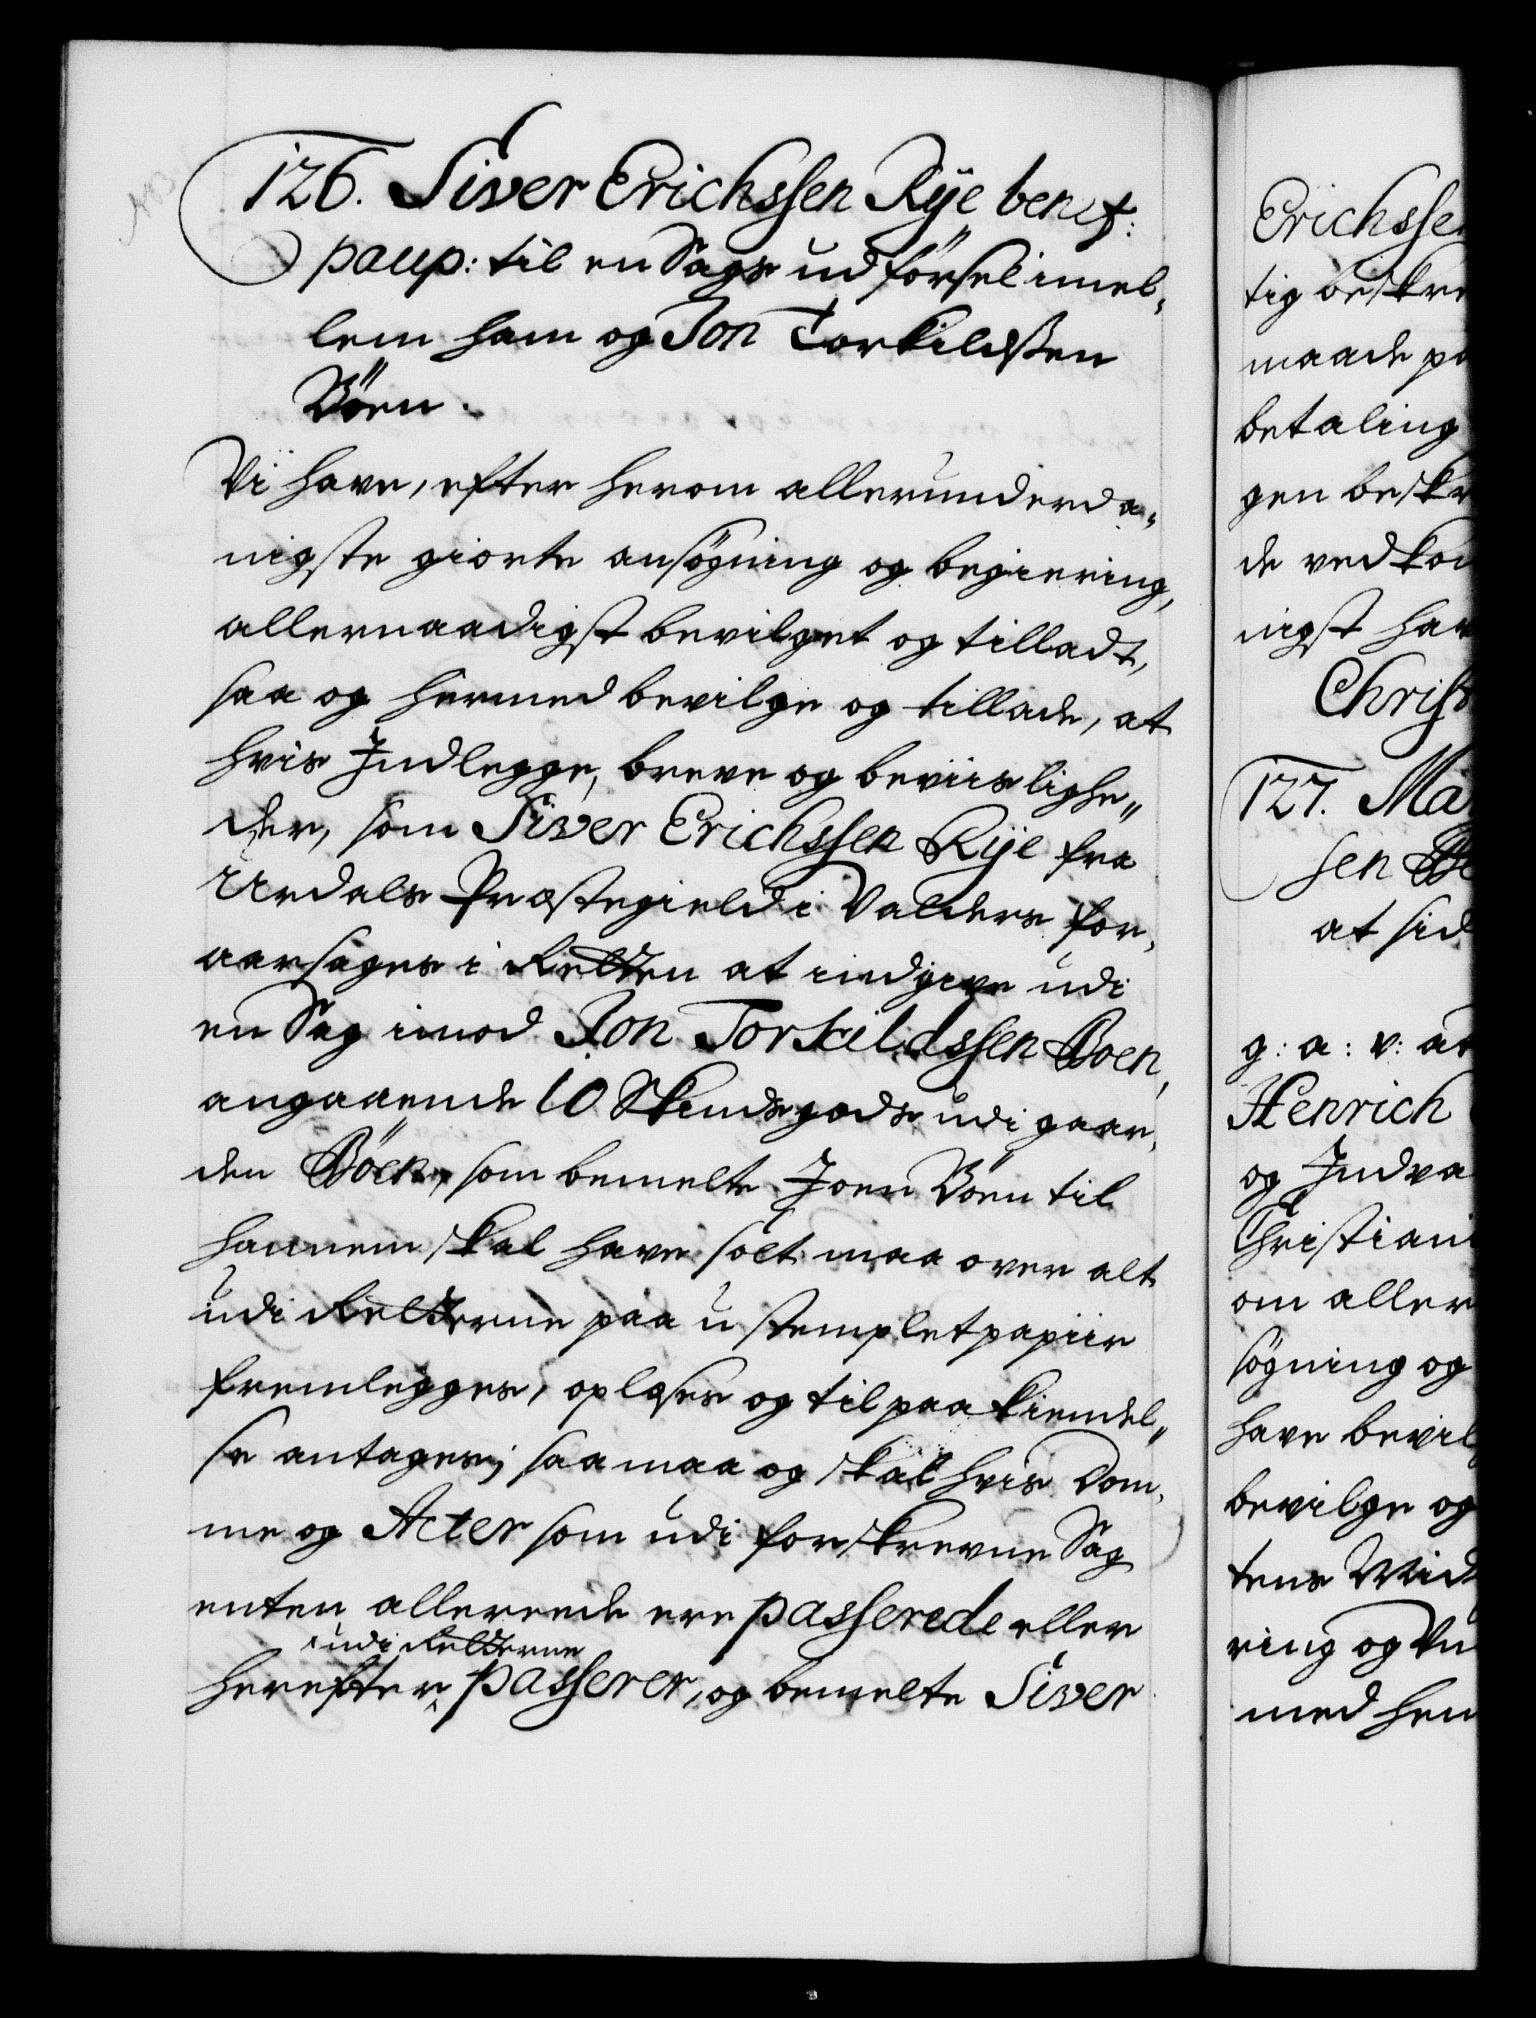 126. Siver Erichssen Rÿe benef:
paup: til en Sags udførsel imel-
lem ham og Jon Torkildssen
Böen.
Vi have, efter herom allerunderda-
nigste giorte ansøgning og begiering,
allernaadigst bevilget og tilladt,
saa og hermed bevilge og tillade, at
hvis Indlegge, breve og beviislighe-
der, som Siver Erichssen Rÿe fra
Urdals Præstegield i Valders for-
aarsages i Retten at indgive udi
en Sag imod Jon Torkildssen Boen,
angaaende 10 Skindsgods udi gaar-
den Böen, som bemelte Joen Böen til
hannem skal have solt maa over alt
udi Retterne paa ustemplet papiir
fremlegges, oplæses og til paakiendel-
se antages; saa maa og skal hvis Dom-
me og Acter som udi forskrevne Sag
enten allereede ere passerede eller
udi Retterne
herefter passerer, og bemelte Siver
Erichssen
tig beskre
maade pa
betaling
gen beskr
de vedkom
nigst hav
Christ
127. Mar
sen
at sid
g: a: v: at
Henrich
og Indva
Christiani
om aller
søgning og
have bevilg
bevilge og
tens Mid
ring og
med hen